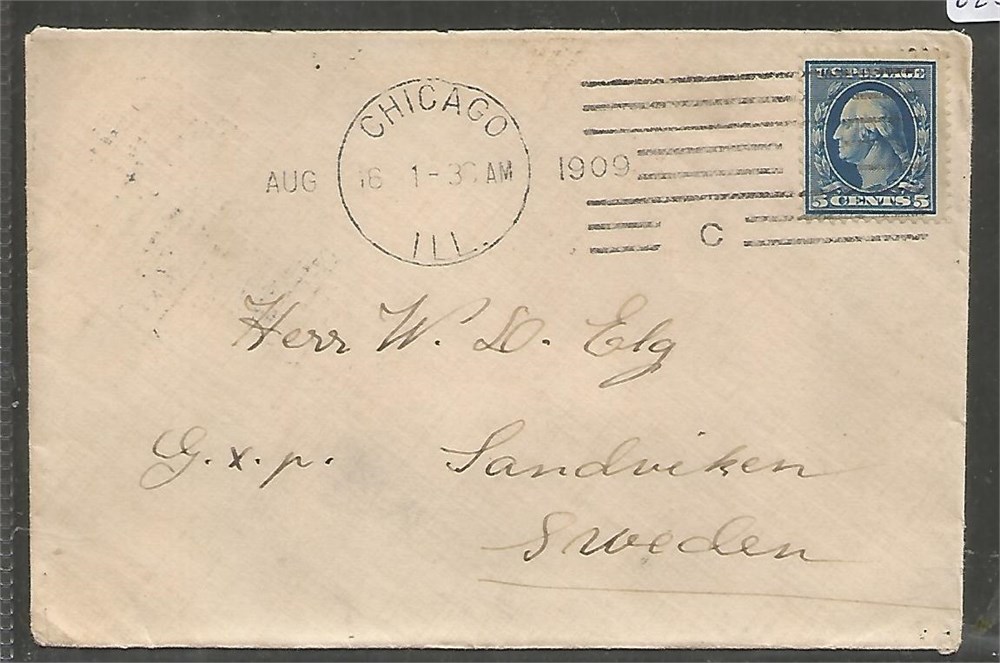 CHICAGO
AUG 16 1-30 AM 1909
ILL.
C
U.S. POSTAGE
5 CENTS 5
Herr W. D. Elg
G.x.p. Sandviken
Sweden